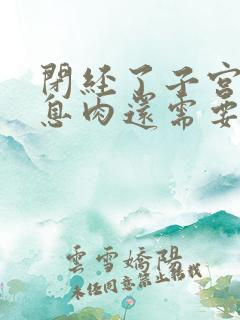 閉經了子宮
息肉還需要
雲雪嬌陽
未经同意禁止转载